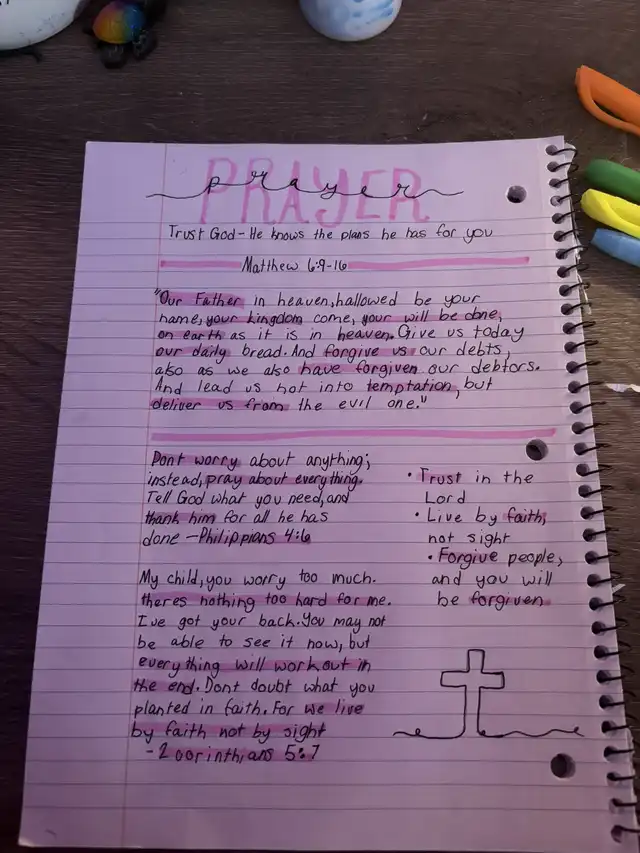 PRAYER
prayer
Trust God - He knows the plans he has for you
Matthew 6:9-16
"Our Father in heaven, hallowed be your
name, your kingdom come, your will be done,
on earth as it is in heaven. Give us today
our daily bread. And forgive us our debts,
also as we also have forgiven our debtors.
And lead us not into temptation, but
deliver us from the evil one."
Dont worry about anything;
instead, pray about everything.
Tell God what you need, and
thank him for all he has
done - Philippians 4:6
My child, you worry too much.
theres nothing too hard for me.
I've got your back. You may not
be able to see it now, but
everything will work out in
the end. Dont doubt what you
planted in faith. For we live
by faith not by sight
- 2 corinthians 5:7
• Trust in the
Lord
• Live by faith,
not sight
• Forgive people,
and you will
be forgiven